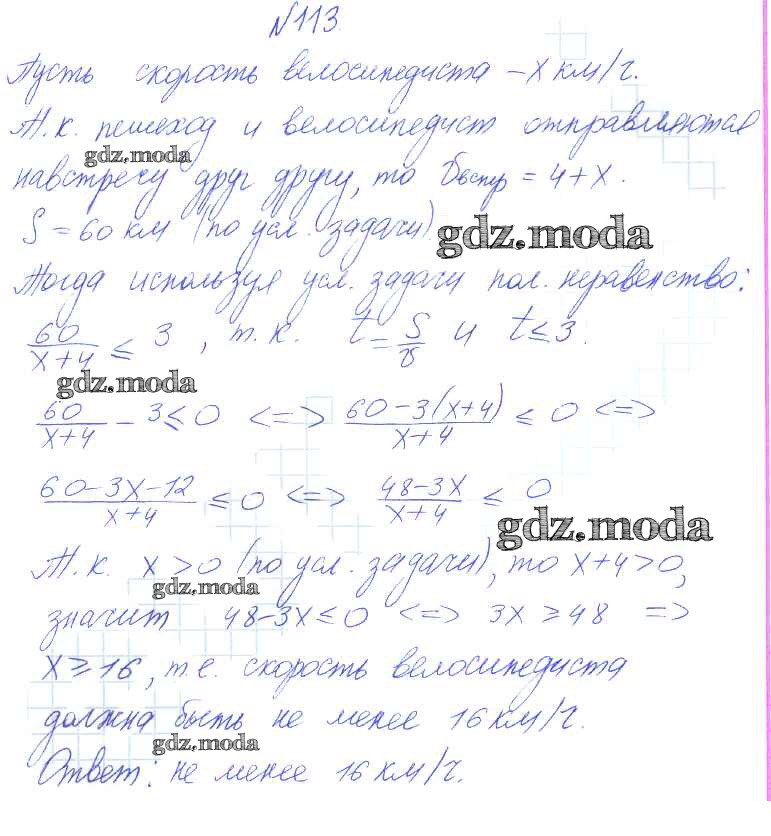 №113.
Пусть скорость велосипедиста – x км/ч.
Т.к. пешеход и велосипедист отправляются
gdz.moda
навстречу друг другу, то бвстр = 4 + x.
S = 60 км (по усл. задачи).
gdz.moda
Тогда используя усл. задачи пол. неравенство:
60/(x+4) ≤ 3, т.к. t = S/v и t ≤ 3.
gdz.moda
60/(x+4) – 3 ≤ 0 <=> (60–3(x+4))/(x+4) ≤ 0 <=>
(60–3x–12)/(x+4) ≤ 0 <=> (48–3x)/(x+4) ≤ 0
gdz.moda
Т.к. x > 0 (по усл. задачи), то x+4 > 0,
gdz.moda
значит 48–3x ≤ 0 <=> 3x ≥ 48 =>
x ≥ 16, т.е. скорость велосипедиста
должна быть не менее 16 км/ч.
gdz.moda
Ответ: не менее 16 км/ч.